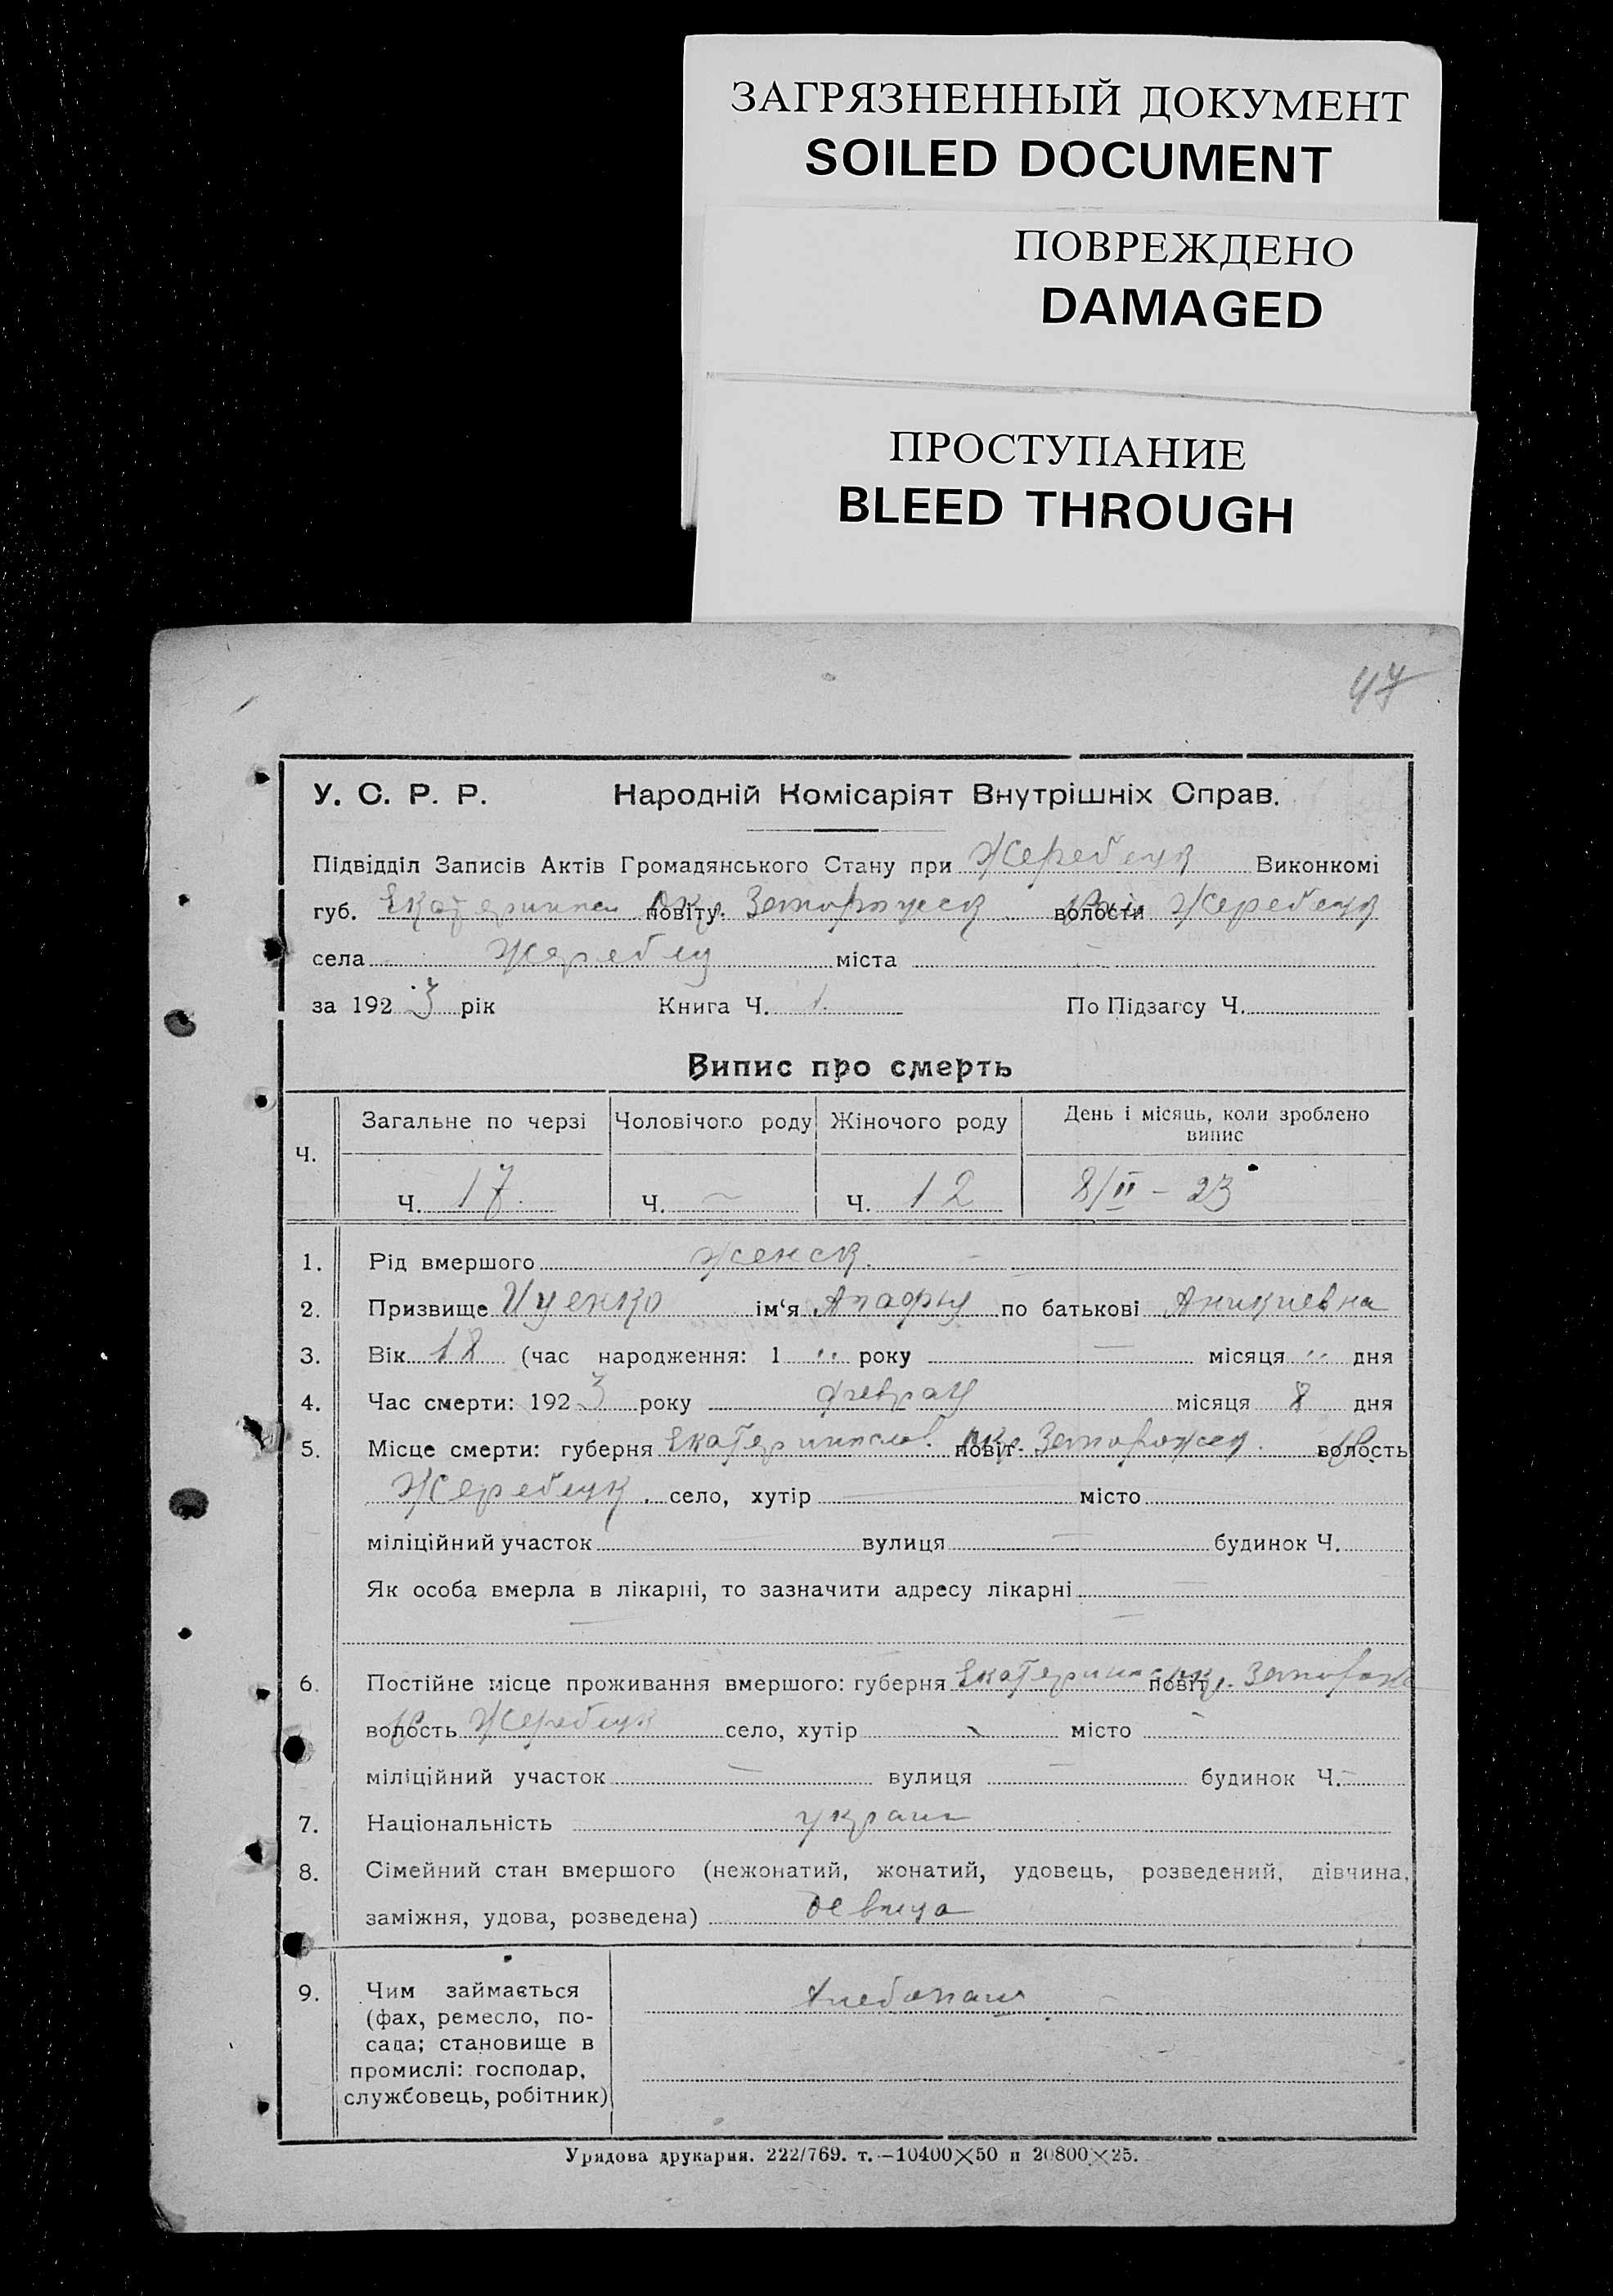 ЗАГРЯЗНЕННЫЙ ДОКУМЕНТ
SOILED DOCUMENT
ПОВРЕЖДЕНО
DAMAGED
ПРОСТУПАНИЕ
BLEED THROUGH
47
У. С. Р. Р. Народній Комісаріят Внутрішніх Справ.
Підвідділ Записів Актів Громадянського Стану при Жеребецк Виконкомі
губ. повіту Окр. волости Жеребецк
села Жеребец міста —
за 1923 рік Книга Ч. 1. По Підзагсу Ч.
Випис про смерть
Ч. Загальне по черзі Чоловічого роду Жіночого роду День і місяць, коли зроблено випис
Ч. 17. Ч. — Ч. 12 8/II – 23
1. Рід вмершого женск.
2. Призвище Иценко ім‘я по батькові Аникиевна
3. Вік 18 (час народження: 1 " року — місяця " дня
4. Час смерти: 1923 року феврал місяця 8 дня
5. Місце смерти: губерня Екатеринослав. повіт Окр. волость
Жеребецк. село, хутір — місто
міліційний участок — вулиця — будинок Ч.
Як особа вмерла в лікарні, то зазначити адресу лікарні —
— —
6. Постійне місце проживання вмершого: губерня повіт окр.
волость Жеребецк село, хутір — місто —
міліційний участок — вулиця — будинок Ч. —
7. Національність украин
8. Сімейний стан вмершого (нежонатий, жонатий, удовець, розведений, дівчина,
заміжня, удова, розведена) девица
9. Чим займається хлебопаш
(фах, ремесло, по-
сада; становище в
промислі: господар,
службовець, робітник)
Урядова друкарня. 222/769. т.—10400×50 п 20800×25.